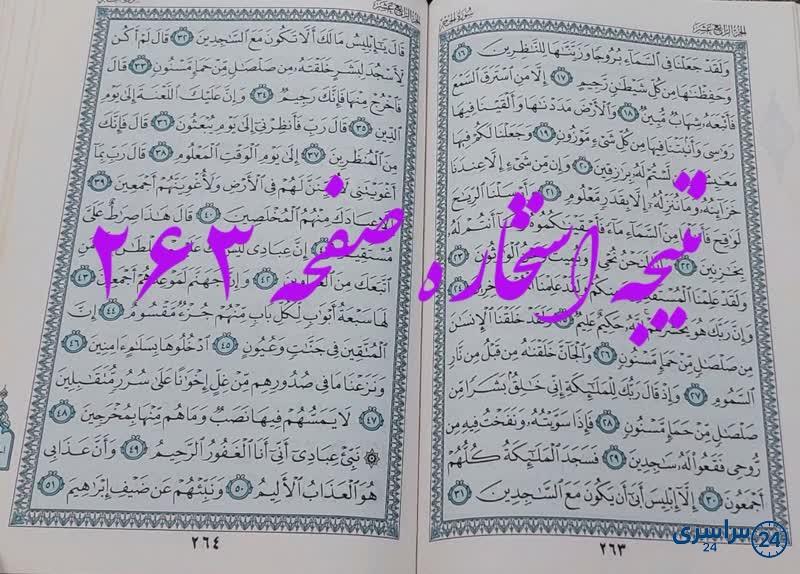 الجزء الرابع عشر
سورة الحجر
وَلَقَدْ جَعَلْنَا فِي ٱلسَّمَآءِ بُرُوجًا وَزَيَّنَّٰهَا لِلنَّٰظِرِينَ ١٦
وَحَفِظْنَٰهَا مِن كُلِّ شَيْطَٰنٍ رَّجِيمٍ ١٧ إِلَّا مَنِ ٱسْتَرَقَ ٱلسَّمْعَ
فَأَتْبَعَهُۥ شِهَابٌ مُّبِينٌ ١٨ وَٱلْأَرْضَ مَدَدْنَٰهَا وَأَلْقَيْنَا فِيهَا
رَوَٰسِىَ وَأَنۢبَتْنَا فِيهَا مِن كُلِّ شَىْءٍ مَّوْزُونٍ ١٩ وَجَعَلْنَا لَكُمْ فِيهَا
مَعَٰيِشَ لَّسْتُمْ لَهُۥ بِرَٰزِقِينَ ٢٠ وَإِن مِّن شَىْءٍ إِلَّا عِندَنَا
خَزَآئِنُهُۥ وَمَا نُنَزِّلُهُۥٓ إِلَّا بِقَدَرٍ مَّعْلُومٍ ٢١ وَأَرْسَلْنَا ٱلرِّيَٰحَ
لَوَٰقِحَ فَأَنزَلْنَا مِنَ ٱلسَّمَآءِ مَآءً فَأَسْقَيْنَٰكُمُوهُ وَمَآ أَنتُمْ لَهُۥ
بِخَٰزِنِينَ ٢٢ وَإِنَّا لَنَحْنُ نُحْىِۦ وَنُمِيتُ وَنَحْنُ ٱلْوَٰرِثُونَ ٢٣
وَلَقَدْ عَلِمْنَا ٱلْمُسْتَقْدِمِينَ مِنكُمْ وَلَقَدْ عَلِمْنَا ٢٤
وَإِنَّ رَبَّكَ هُوَ يَحْشُرُهُمْ إِنَّهُۥ حَكِيمٌ عَلِيمٌ ٢٥ وَلَقَدْ خَلَقْنَا ٱلْإِنسَٰنَ
مِن صَلْصَٰلٍ مِّنْ حَمَإٍ مَّسْنُونٍ ٢٦ وَٱلْجَآنَّ خَلَقْنَٰهُ مِن قَبْلُ مِن نَّارِ
ٱلسَّمُومِ ٢٧ وَإِذْ قَالَ رَبُّكَ لِلْمَلَٰٓئِكَةِ إِنِّى خَٰلِقٌۢ بَشَرًا مِّن
صَلْصَٰلٍ مِّنْ حَمَإٍ مَّسْنُونٍ ٢٨ فَإِذَا سَوَّيْتُهُۥ وَنَفَخْتُ فِيهِ مِن
رُّوحِى فَقَعُوا۟ لَهُۥ سَٰجِدِينَ ٢٩ فَسَجَدَ ٱلْمَلَٰٓئِكَةُ كُلُّهُمْ
أَجْمَعُونَ ٣٠ إِلَّآ إِبْلِيسَ أَبَىٰٓ أَن يَكُونَ مَعَ ٱلسَّٰجِدِينَ ٣١
٢٦٣
الجزء الرابع عشر
قَالَ يَٰٓإِبْلِيسُ مَا لَكَ أَلَّا تَكُونَ مَعَ ٱلسَّٰجِدِينَ ٣٢ قَالَ لَمْ أَكُن
لِّأَسْجُدَ لِبَشَرٍ خَلَقْتَهُۥ مِن صَلْصَٰلٍ مِّنْ حَمَإٍ مَّسْنُونٍ ٣٣ قَالَ
فَٱخْرُجْ مِنْهَا فَإِنَّكَ رَجِيمٌ ٣٤ وَإِنَّ عَلَيْكَ ٱللَّعْنَةَ إِلَىٰ يَوْمِ
ٱلدِّينِ ٣٥ قَالَ رَبِّ فَأَنظِرْنِىٓ إِلَىٰ يَوْمِ يُبْعَثُونَ ٣٦ قَالَ فَإِنَّكَ
مِنَ ٱلْمُنظَرِينَ ٣٧ إِلَىٰ يَوْمِ ٱلْوَقْتِ ٱلْمَعْلُومِ ٣٨ قَالَ رَبِّ بِمَآ
أَغْوَيْتَنِى لَأُزَيِّنَنَّ لَهُمْ فِى ٱلْأَرْضِ وَلَأُغْوِيَنَّهُمْ أَجْمَعِينَ ٣٩
إِلَّا عِبَادَكَ مِنْهُمُ ٱلْمُخْلَصِينَ ٤٠ قَالَ هَٰذَا صِرَٰطٌ عَلَىَّ
مُسْتَقِيمٌ ٤١ إِنَّ عِبَادِى لَيْسَ لَكَ عَلَيْهِمْ سُلْطَٰنٌ إِلَّا مَنِ
ٱتَّبَعَكَ مِنَ ٱلْغَاوِينَ ٤٢ وَإِنَّ جَهَنَّمَ لَمَوْعِدُهُمْ أَجْمَعِينَ ٤٣
لَهَا سَبْعَةُ أَبْوَٰبٍ لِّكُلِّ بَابٍ مِّنْهُمْ جُزْءٌ مَّقْسُومٌ ٤٤ إِنَّ
ٱلْمُتَّقِينَ فِى جَنَّٰتٍ وَعُيُونٍ ٤٥ ٱدْخُلُوهَا بِسَلَٰمٍ ءَامِنِينَ ٤٦
وَنَزَعْنَا مَا فِى صُدُورِهِم مِّنْ غِلٍّ إِخْوَٰنًا عَلَىٰ سُرُرٍ مُّتَقَٰبِلِينَ
٤٧ لَا يَمَسُّهُمْ فِيهَا نَصَبٌ وَمَا هُم مِّنْهَا بِمُخْرَجِينَ ٤٨
۞ نَبِّئْ عِبَادِىٓ أَنِّىٓ أَنَا ٱلْغَفُورُ ٱلرَّحِيمُ ٤٩ وَأَنَّ عَذَابِى
هُوَ ٱلْعَذَابُ ٱلْأَلِيمُ ٥٠ وَنَبِّئْهُمْ عَن ضَيْفِ إِبْرَٰهِيمَ ٥١
٢٦٤
نتیجه استخاره صفحه ۲۶۳
سراسری 24
24